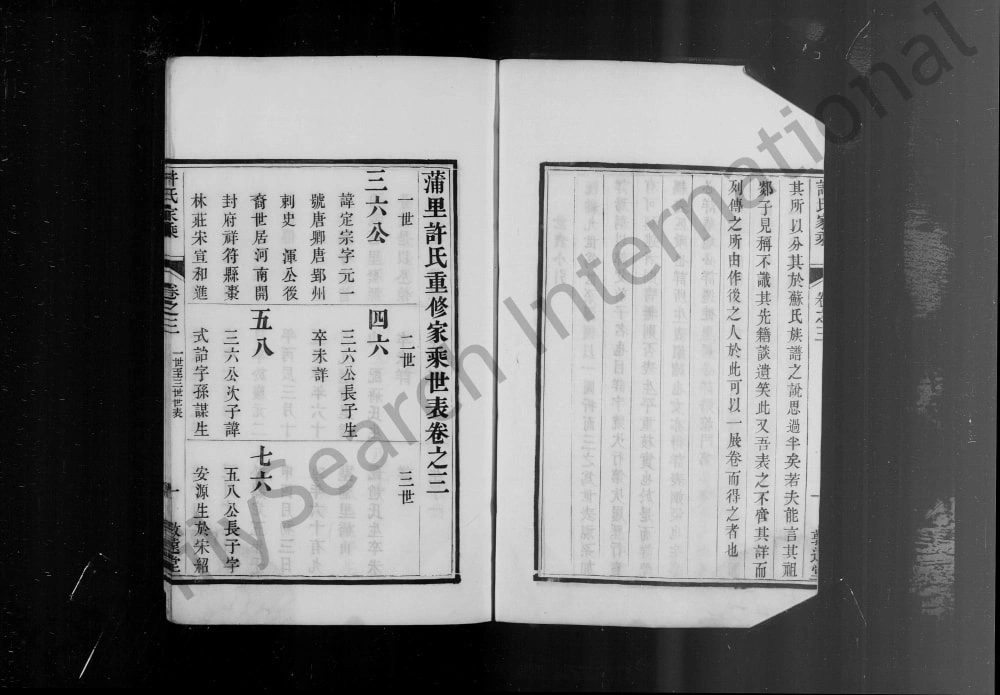 許氏家乘
卷之三
一
敦遠堂
其所以分其於蘇氏族譜之說思過半矣若夫能言其祖
鄰子見稱不識其先籍談遺笑此又吾表之不啻其詳而
列傳之所由作後之人於此可以一展卷而得之者也
蒲里許氏重修家乘世表卷之三
一世
二世
三世
三六公
諱定宗字元一
號唐卿唐郢州
刺史 渾公後
裔世居河南開
封府祥符縣棗
林莊宋宣和進
四六
三六公長子生
卒未詳
五八
三六公次子諱
式詒字孫謀生
七六
五八公長子字
安源生於宋紹
許氏家乘
卷之三
一世至三世世表
一
敦遠堂
MySearch International